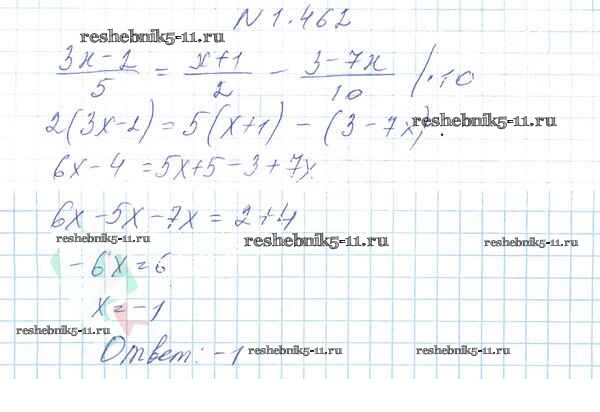 N 1.462
reshebnik5-11.ru
(3x-2)/5 = (x+1)/2 - (3-7x)/10 /·10
2(3x-2) = 5(x+1) - (3-7x)
reshebnik5-11.ru
6x-4 = 5x+5-3+7x
6x-5x-7x = 2+4
reshebnik5-11.ru reshebnik5-11.ru reshebnik5-11.ru
-6x = 6
x = -1
reshebnik5-11.ru
Ответ: -1 reshebnik5-11.ru reshebnik5-11.ru